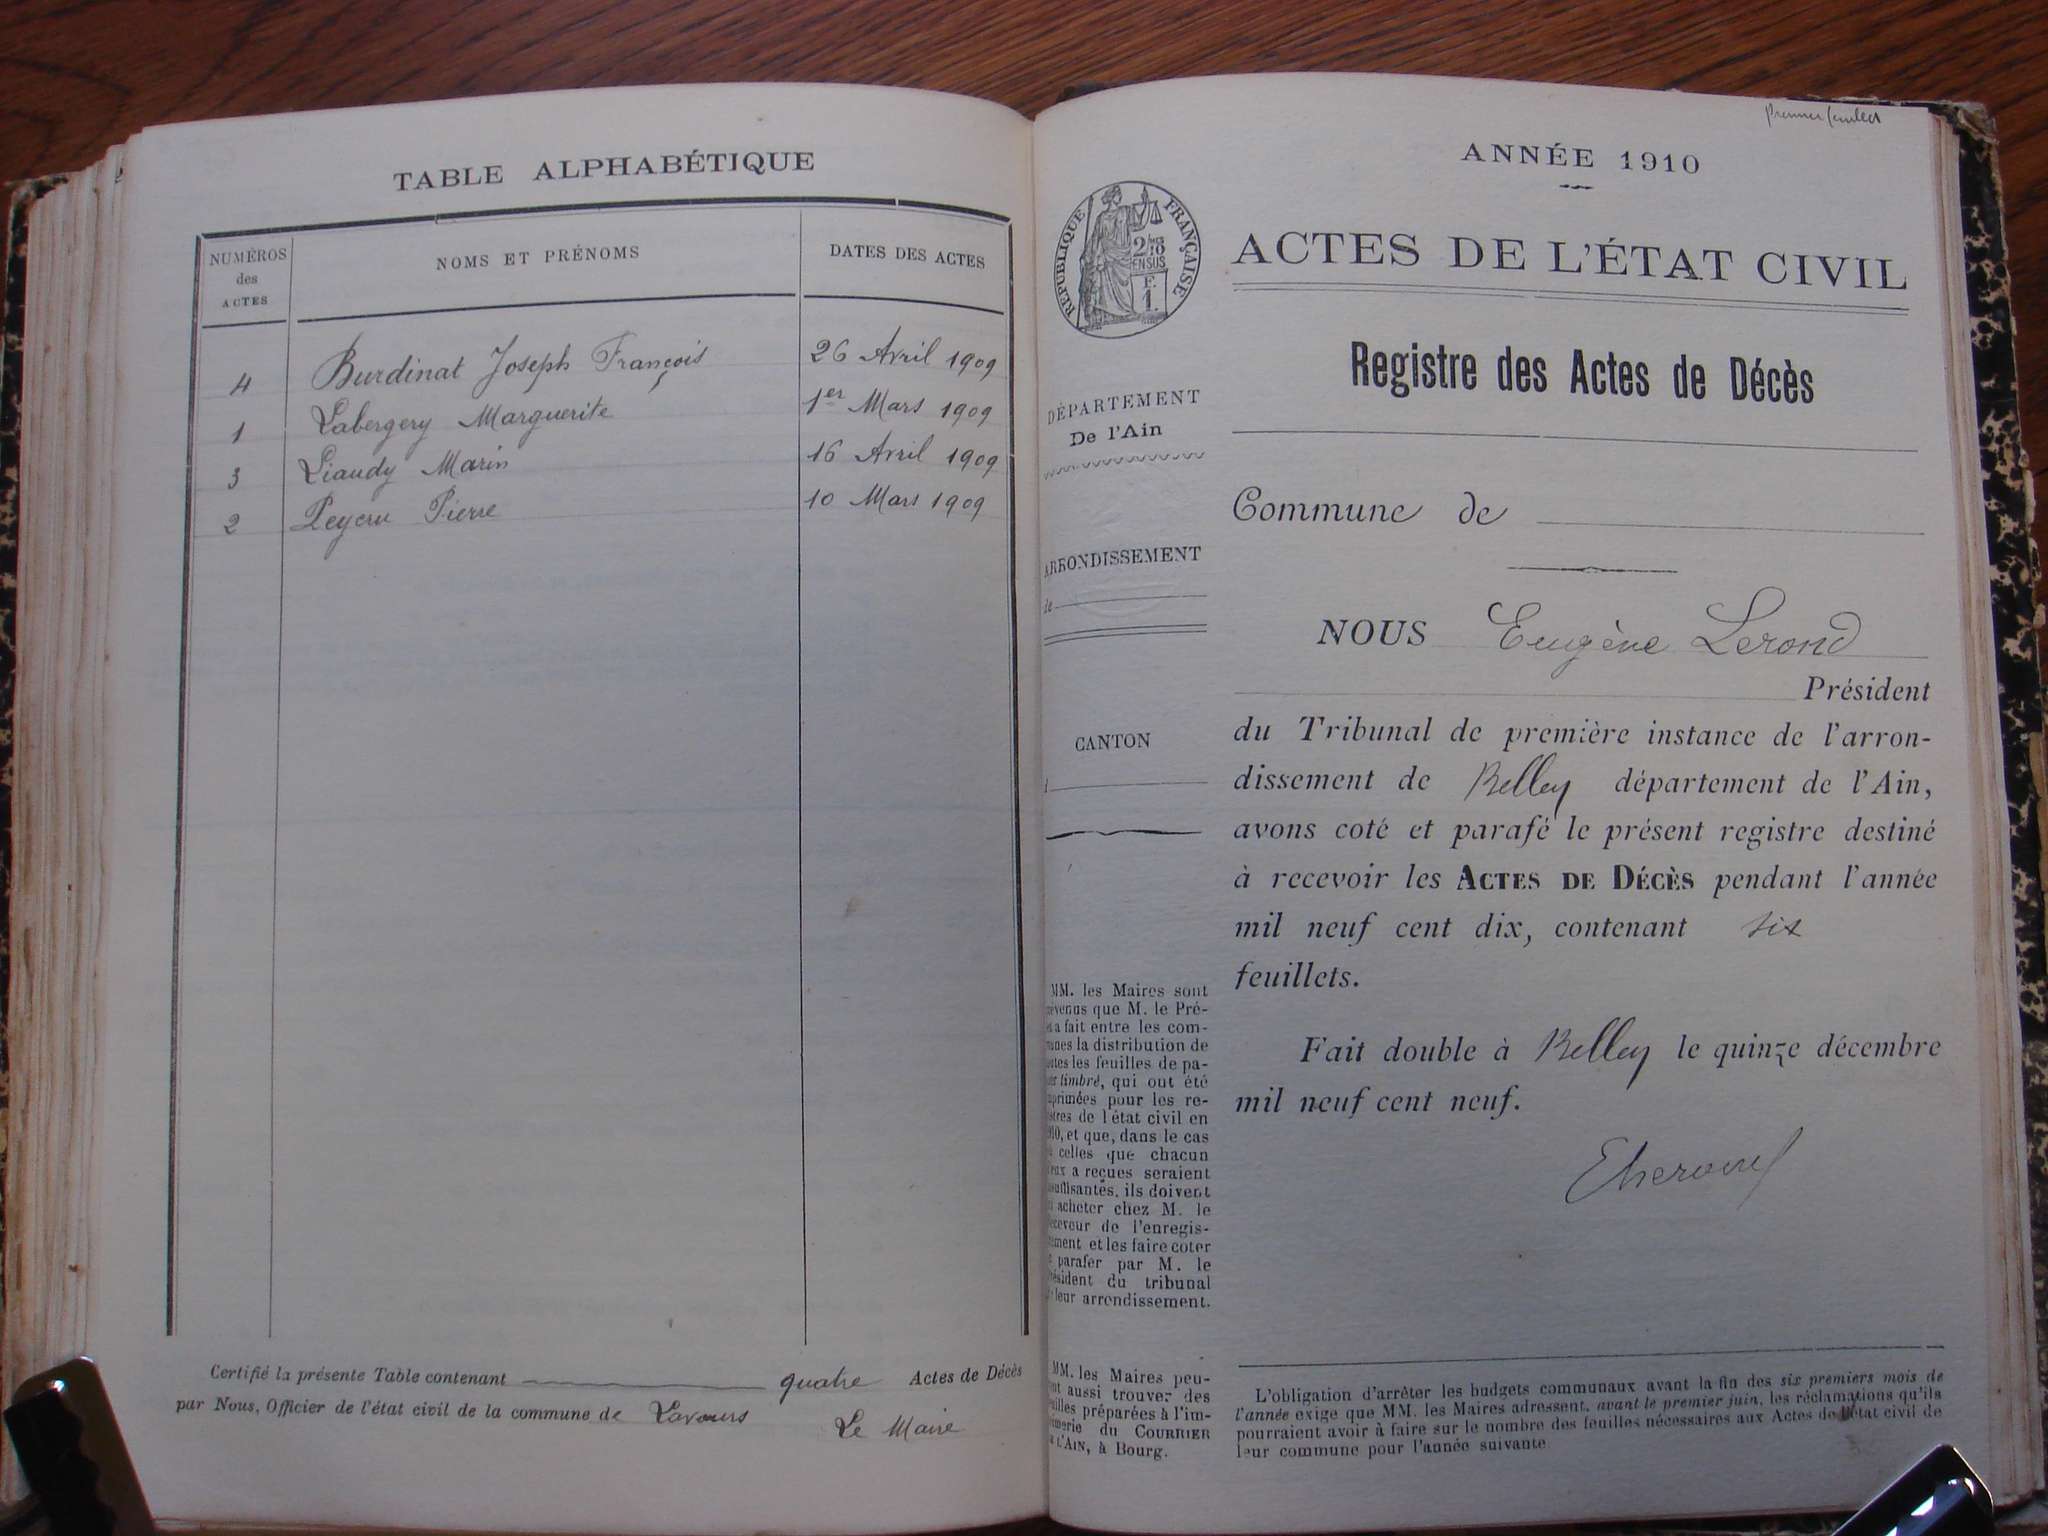 TABLE ALPHABÉTIQUE
NUMÉROS des ACTES
NOMS ET PRÉNOMS
DATES DES ACTES
4 Burdinat Joseph François 26 Avril 1909
1 Labergery Marguerite 1er Mars 1909
3 Liaudy Marin 16 Avril 1909
2 Peycru Pierre 10 Mars 1909
Certifié la présente Table contenant quatre Actes de Décès
par Nous, Officier de l'état civil de la commune de Lavours
Le Maire
premier feuillet
ANNÉE 1910
RÉPUBLIQUE FRANÇAISE
ACTES DE L'ÉTAT CIVIL
Registre des Actes de Décès
DÉPARTEMENT
De l'Ain
Commune de
ARRONDISSEMENT
de
CANTON
NOUS Eugène Lerond
Président
du Tribunal de première instance de l'arron-
dissement de Belley département de l'Ain,
avons coté et parafé le présent registre destiné
à recevoir les ACTES DE DÉCÈS pendant l'année
mil neuf cent dix, contenant six
feuillets.
Fait double à Belley le quinze décembre
mil neuf cent neuf.
MM. les Maires sont
que M. le Pré-
a fait entre les com-
la distribution de
les feuilles de pa-
timbré, qui ont été
pour les re-
de l'état civil en
et que, dans le cas
celles que chacun
a reçues seraient
ils doivent
acheter chez M. le
de l'enregis-
et les faire coter
parafer par M. le
du tribunal
leur arrondissement.
MM. les Maires peu-
aussi trouver des
préparées à l'im-
du COURRIER
L'AIN, à Bourg.
L'obligation d'arrêter les budgets communaux avant la fin des six premiers mois de
l'année exige que MM. les Maires adressent, avant le premier juin, les réclamations qu'ils
pourraient avoir à faire sur le nombre des feuilles nécessaires aux Actes de l'état civil de
leur commune pour l'année suivante